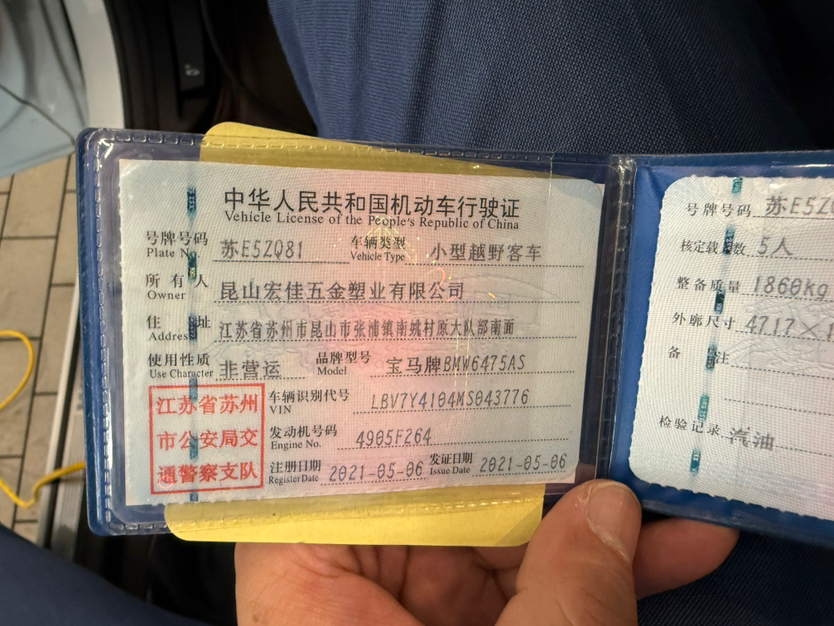 中华人民共和国机动车行驶证
Vehicle License of the People's Republic of China
号牌号码 苏E5ZQ81 车辆类型 小型越野客车
Plate No. Vehicle Type
所有人 昆山宏佳五金塑业有限公司
Owner
住址 江苏省苏州市昆山市张浦镇南城村原大队部南面
Address
使用性质 非营运 品牌型号 宝马牌BMW6475AS
Use Character Model
江苏省苏州
市公安局交
通警察支队
车辆识别代号 LBV7Y4104MS043776
VIN
发动机号码 4905F264
Engine No.
注册日期 2021-05-06 发证日期 2021-05-06
Register Date Issue Date
号牌号码 苏E5Z
核定载人数 5人
整备质量 1860kg
外廓尺寸 4717×
备注
检验记录 汽油